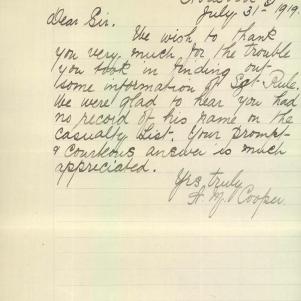 July 31 - 1919
Dear Sir.
We wish to thank
you very much for the trouble
you took in finding out
some information of Sgt. Rule.
We were glad to hear you had
no record of his name on the
Casualty List. Your prompt
& courteous answer is much
appreciated.
Yrs. truly
M. Cooper.